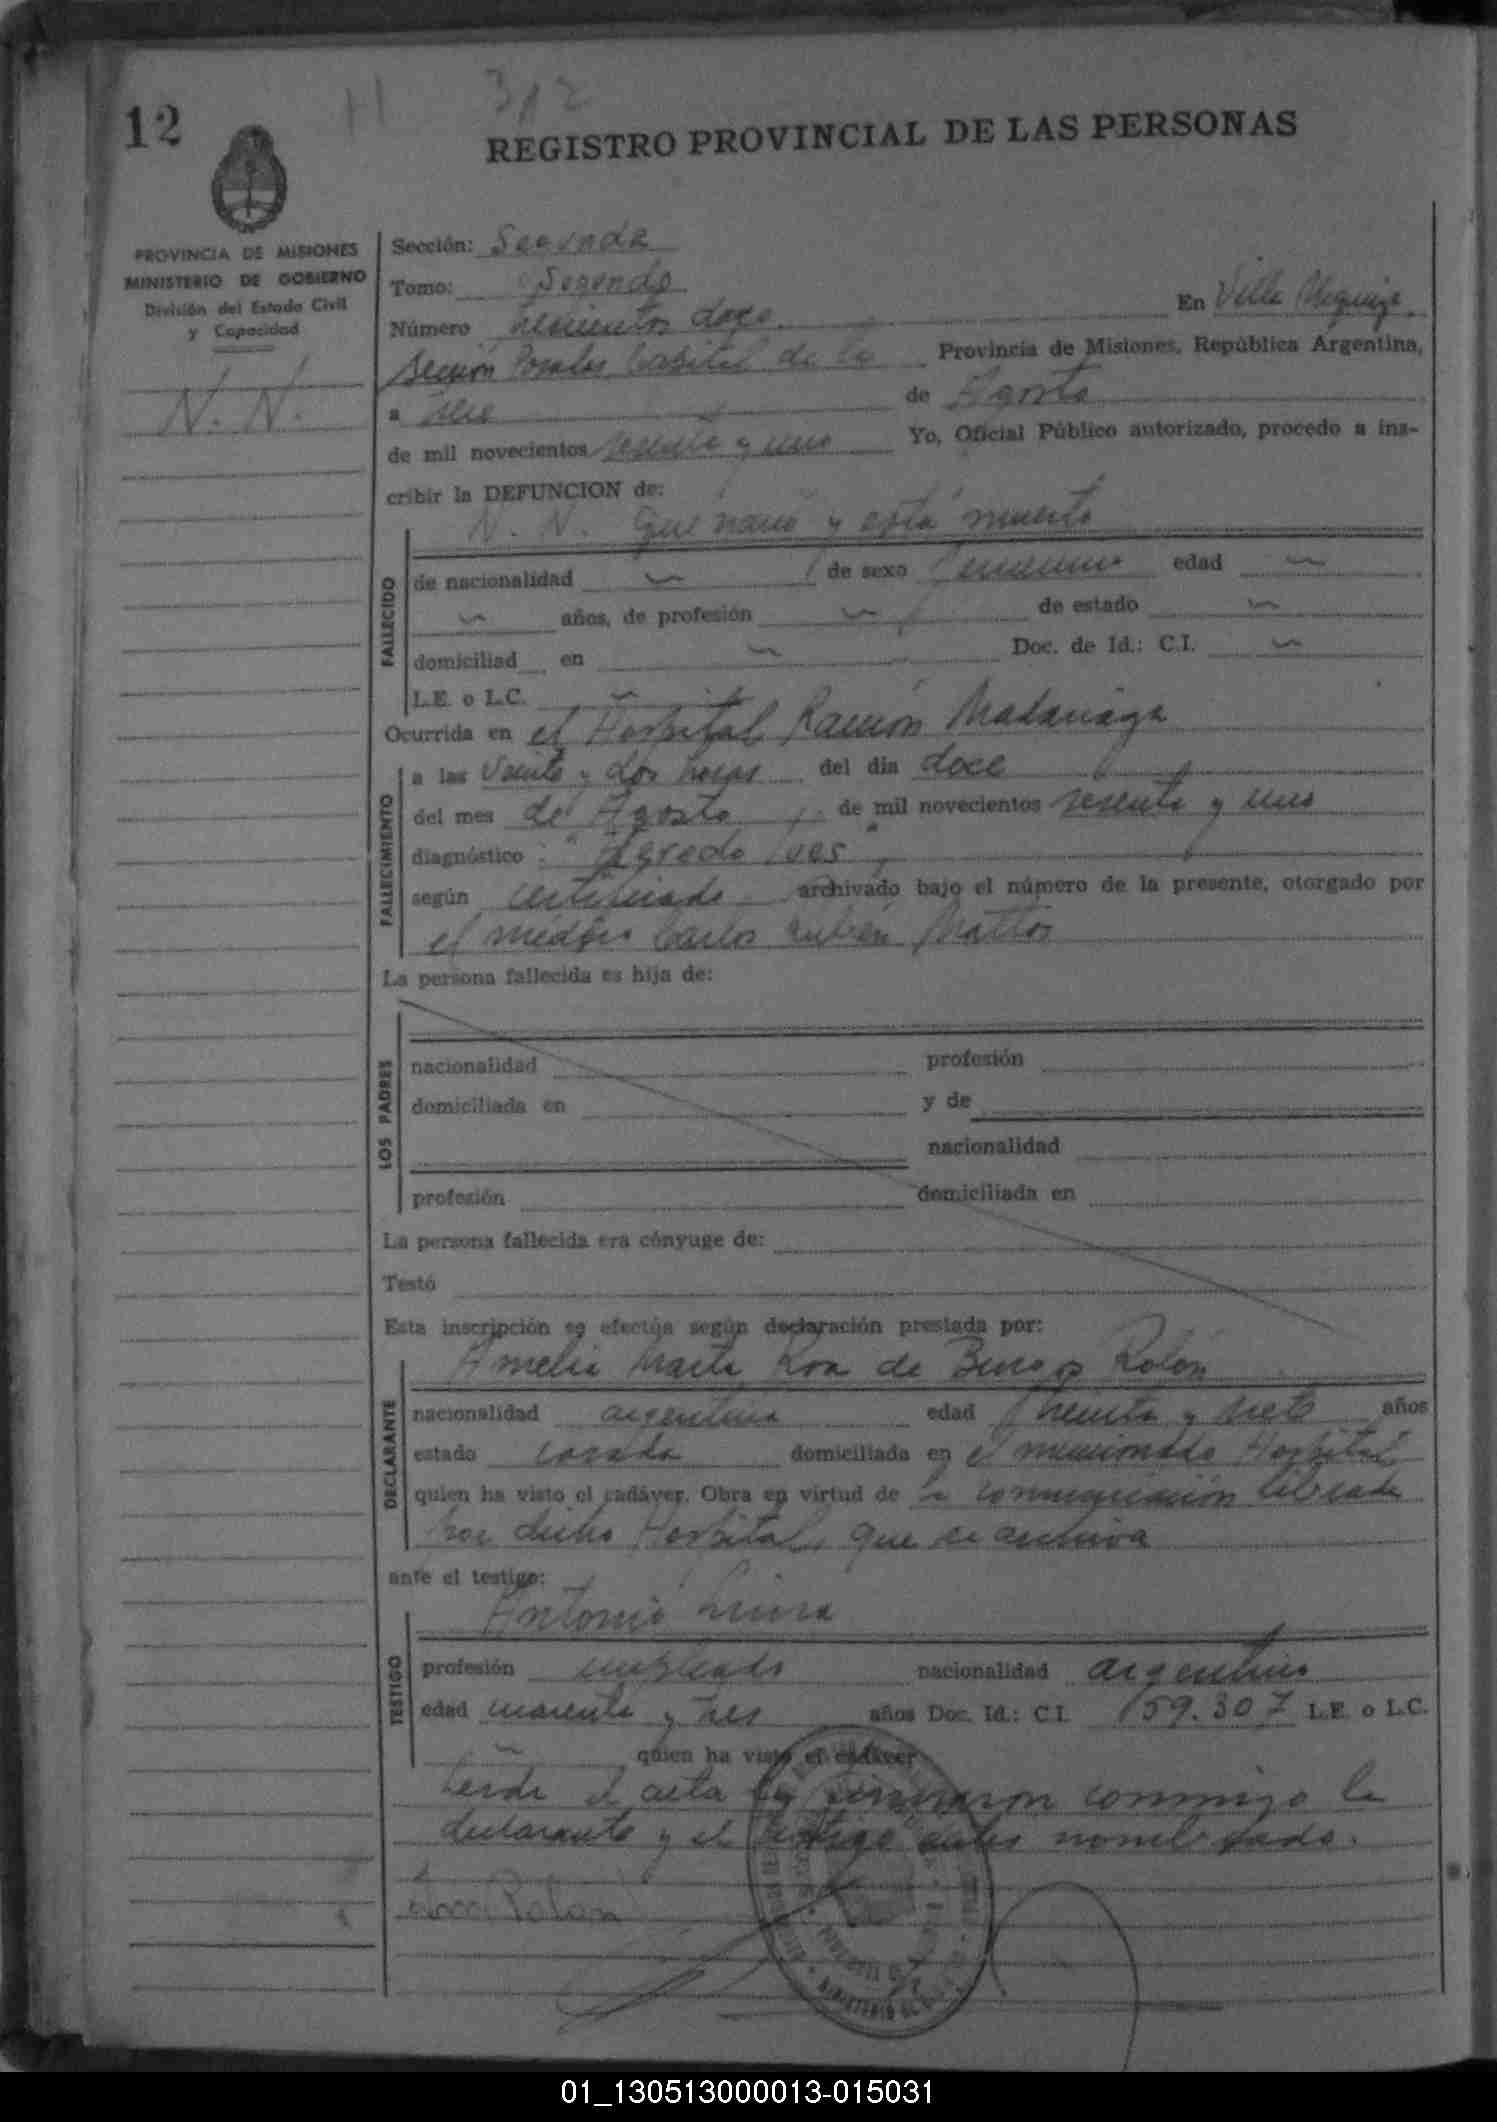 12
312
REGISTRO PROVINCIAL DE LAS PERSONAS
PROVINCIA DE MISIONES
MINISTERIO DE GOBIERNO
División del Estado Civil
y Capacidad
N. N.
Sección: Segunda
Tomo: Segundo
Número trescientos doce En Villa Urquiza
Sección Posadas Capital de la Provincia de Misiones, República Argentina,
a de Agosto
de mil novecientos sesenta y uno Yo, Oficial Público autorizado, procedo a ins-
cribir la DEFUNCION de:
N. N. que nació y está muerto
FALLECIDO
de nacionalidad de sexo femenino edad
años, de profesión de estado
domiciliad en Doc. de Id.: C.I.
L.E. o L.C.
Ocurrida en el Hospital Ramón Madariaga
FALLECIMIENTO
a las veinte y dos horas del día doce
del mes de Agosto de mil novecientos sesenta y uno
diagnóstico:
según certificado archivado bajo el número de la presente, otorgado por
el médico Carlos Rubén Mattos
La persona fallecida es hija de:
LOS PADRES
nacionalidad profesión
domiciliada en y de
nacionalidad
profesión domiciliada en
La persona fallecida era cónyuge de:
Testó
Esta inscripción se efectúa según declaración prestada por:
Amelia Marta Roa de Burgos Rolón
DECLARANTE
nacionalidad argentina edad treinta y siete años
estado casada domiciliada en el mencionado Hospital
quien ha visto el cadáver. Obra en virtud de la comunicación librada
por dicho Hospital, que se archiva
ante el testigo:
Antonio
TESTIGO
profesión empleado nacionalidad argentino
edad cuarenta y tres años Doc. Id.: C.I. 159.307 L.E. o L.C.
quien ha visto el cadáver
Leída el acta la firmaron conmigo la
declarante y el testigo antes nombrado.
01_130513000013-015031